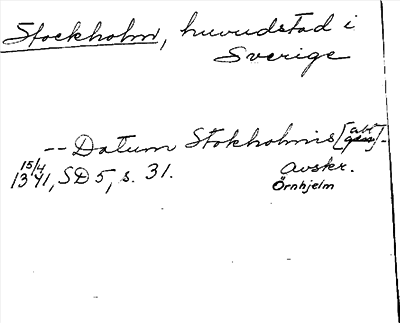 Stockholm, huvudstad i
Sverige
-- Datum Stokholmis [abl
15/4
1341, SD 5, s. 31.
Avskr.
Örnhjelm